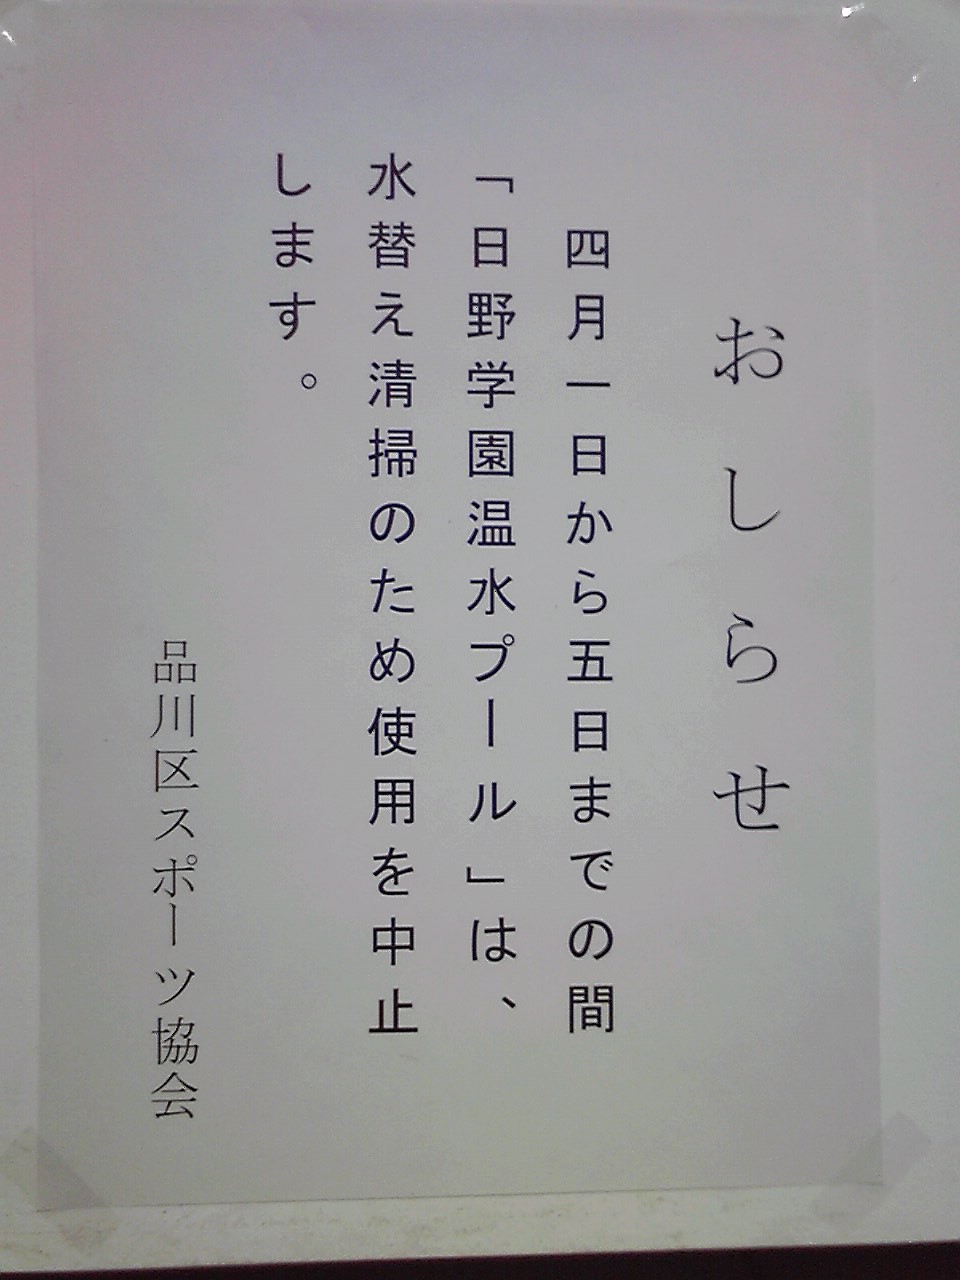 おしらせ
四月一日から五日までの間
「日野学園温水プール」は、
水替え清掃のため使用を中止
します。
品川区スポーツ協会